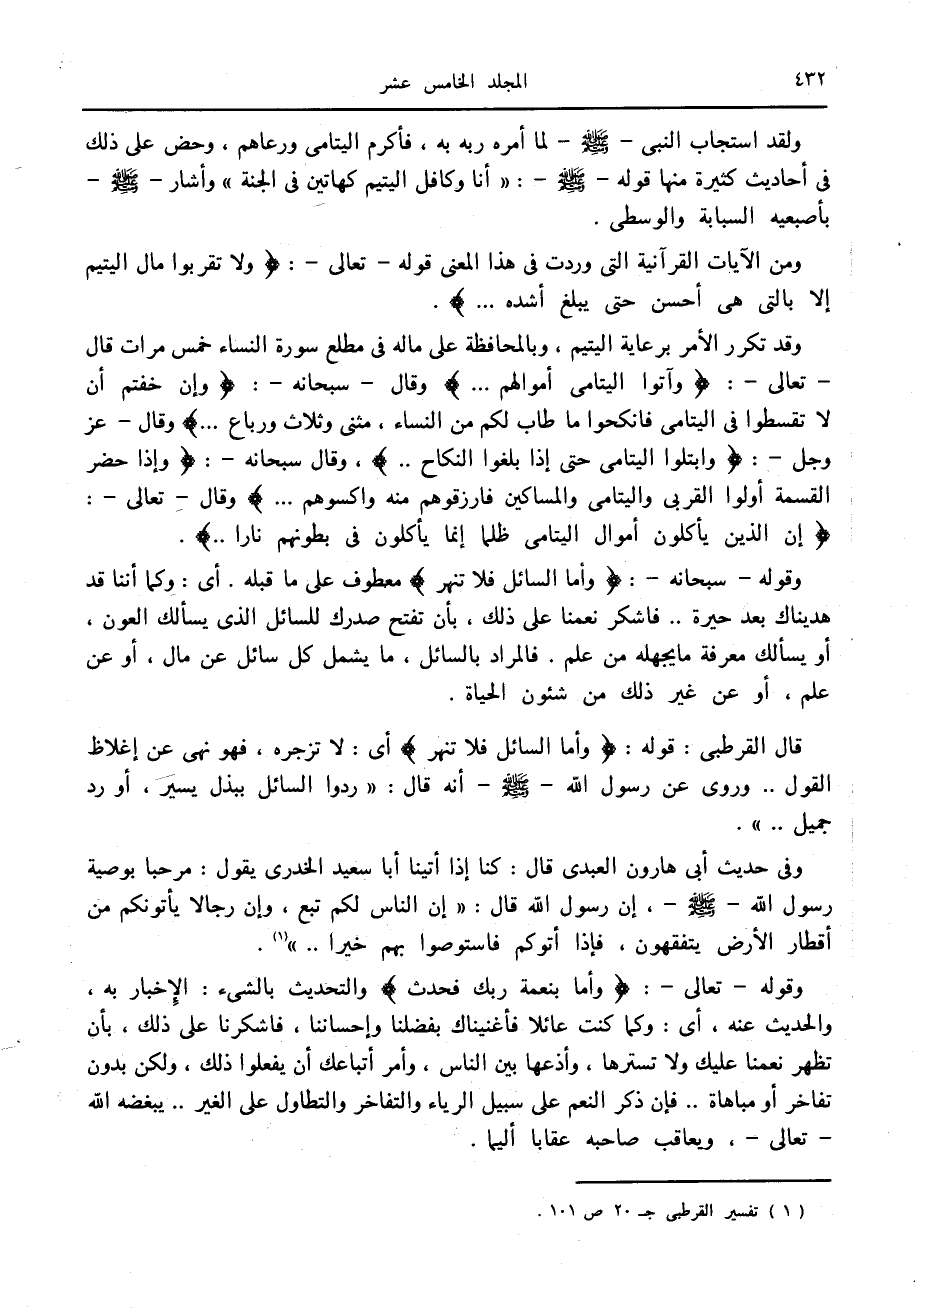 ٤٣٢
المجلد الخامس عشر
ولقد استجاب النبى – ﷺ – لما أمره ربه به ، فأكرم اليتامى ورعاهم ، وحض على ذلك
فى أحاديث كثيرة منها قوله – ﷺ – : « أنا وكافل اليتيم كهاتين فى الجنة » وأشار – ﷺ –
بأصبعيه السبابة والوسطى .
ومن الآيات القرآنية التى وردت فى هذا المعنى قوله – تعالى – : ﴿ ولا تقربوا مال اليتيم
إلا بالتى هى أحسن حتى يبلغ أشده ... ﴾ .
وقد تكرر الأمر برعاية اليتيم ، وبالمحافظة على ماله فى مطلع سورة النساء خمس مرات قال
– تعالى – : ﴿ وآتوا اليتامى أموالهم ... ﴾ وقال – سبحانه – : ﴿ وإن خفتم أن
لا تقسطوا فى اليتامى فانكحوا ما طاب لكم من النساء ، مثنى وثلاث ورباع ...﴾ وقال – عز
وجل – : ﴿ وابتلوا اليتامى حتى إذا بلغوا النكاح .. ﴾ ، وقال سبحانه – : ﴿ وإذا حضر
القسمة أولوا القربى واليتامى والمساكين فارزقوهم منه واكسوهم ... ﴾ وقال – تعالى – :
﴿ إن الذين يأكلون أموال اليتامى ظلما إنما يأكلون فى بطونهم نارا ..﴾ .
وقوله – سبحانه – : ﴿ وأما السائل فلا تنهر ﴾ معطوف على ما قبله . أى : وكما أننا قد
هديناك بعد حيرة .. فاشكر نعمنا على ذلك ، بأن تفتح صدرك للسائل الذى يسألك العون ،
أو يسألك معرفة مايجهله من علم . فالمراد بالسائل ، ما يشمل كل سائل عن مال ، أو عن
علم ، أو عن غير ذلك من شئون الحياة .
قال القرطبى : قوله : ﴿ وأما السائل فلا تنهر ﴾ أى : لا تزجره ، فهو نهى عن إغلاظ
القول .. وروى عن رسول الله – ﷺ – أنه قال : « ردوا السائل ببذل يسير ، أو رد
جميل .. » .
وفى حديث أبى هارون العبدى قال : كنا إذا أتينا أبا سعيد الخدرى يقول : مرحبا بوصية
رسول الله – ﷺ – ، إن رسول الله قال : « إن الناس لكم تبع ، وإن رجالا يأتونكم من
أقطار الأرض يتفقهون ، فإذا أتوكم فاستوصوا بهم خيرا .. »(١) .
وقوله – تعالى – : ﴿ وأما بنعمة ربك فحدث ﴾ والتحديث بالشىء : الإخبار به ،
والحديث عنه ، أى : وكما كنت عائلا فأغنيناك بفضلنا وإحساننا ، فاشكرنا على ذلك ، بأن
تظهر نعمنا عليك ولا تسترها ، وأذعها بين الناس ، وأمر أتباعك أن يفعلوا ذلك ، ولكن بدون
تفاخر أو مباهاة .. فإن ذكر النعم على سبيل الرياء والتفاخر والتطاول على الغير .. يبغضه الله
– تعالى – ، ويعاقب صاحبه عقابا أليما .
( ١ ) تفسير القرطبى جـ ٢٠ ص ١٠١ .